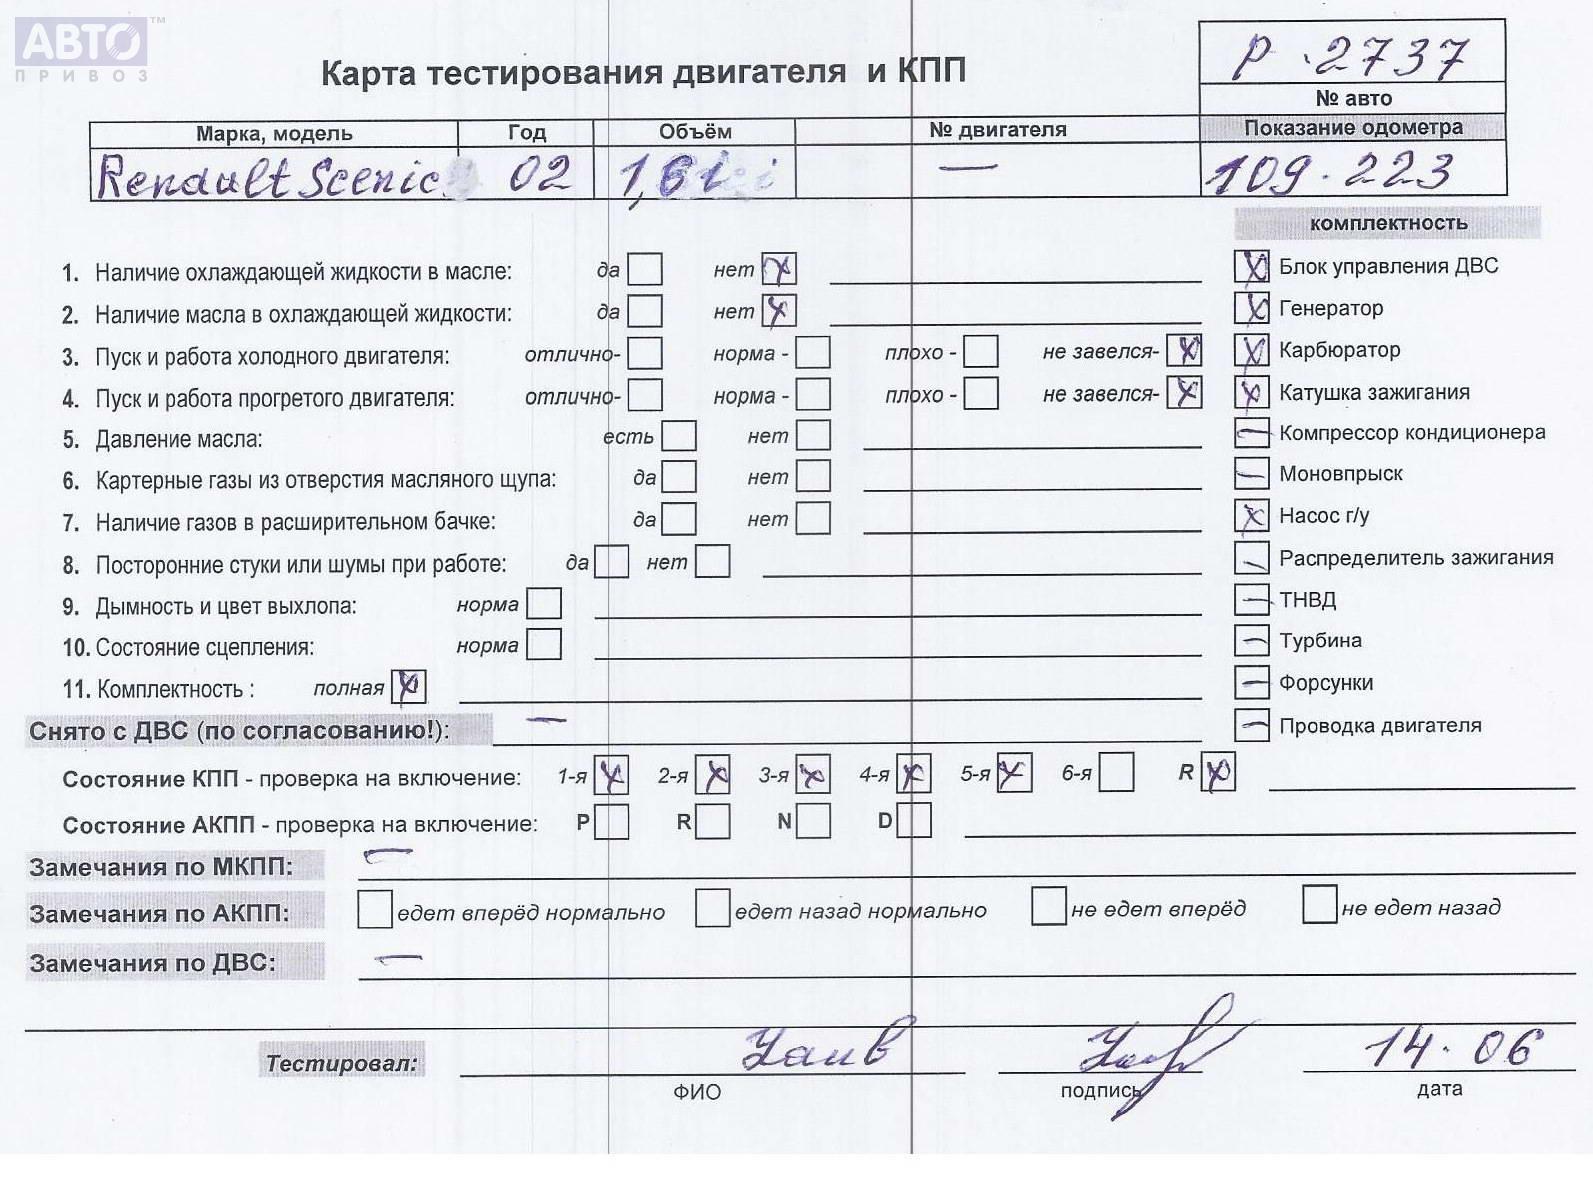 АВТО ™
ПРИВОЗ
Карта тестирования двигателя и КПП
Р-2737
№ авто
Марка, модель Год Объём № двигателя Показание одометра
Rendault Scenic 02 1,6i — 109.223
комплектность
1. Наличие охлаждающей жидкости в масле: да нет x
2. Наличие масла в охлаждающей жидкости: да нет x
3. Пуск и работа холодного двигателя: отлично- норма - плохо - не завелся- x
4. Пуск и работа прогретого двигателя: отлично- норма - плохо - не завелся- x
5. Давление масла: есть нет
6. Картерные газы из отверстия масляного щупа: да нет
7. Наличие газов в расширительном бачке: да нет
8. Посторонние стуки или шумы при работе: да нет
9. Дымность и цвет выхлопа: норма
10. Состояние сцепления: норма
11. Комплектность : полная x
x Блок управления ДВС
x Генератор
x Карбюратор
x Катушка зажигания
— Компрессор кондиционера
— Моновпрыск
x Насос г/у
— Распределитель зажигания
— ТНВД
— Турбина
— Форсунки
— Проводка двигателя
Снято с ДВС (по согласованию!): —
Состояние КПП - проверка на включение: 1-я x 2-я x 3-я x 4-я x 5-я x 6-я R x
Состояние АКПП - проверка на включение: P R N D
Замечания по МКПП: —
Замечания по АКПП: едет вперёд нормально едет назад нормально не едет вперёд не едет назад
Замечания по ДВС: —
Тестировал: 14.06
ФИО подпись дата